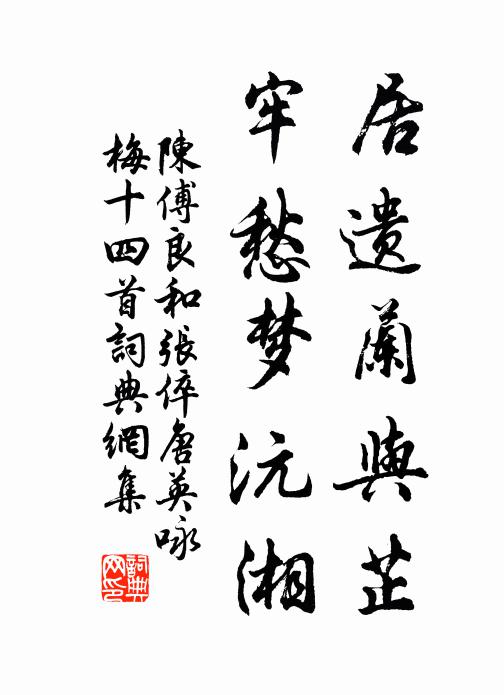 居遗蘭與芷
牢愁梦沅湘
陳傅良和張倅唐英咏
梅十四首詞典網集
詞典
网印